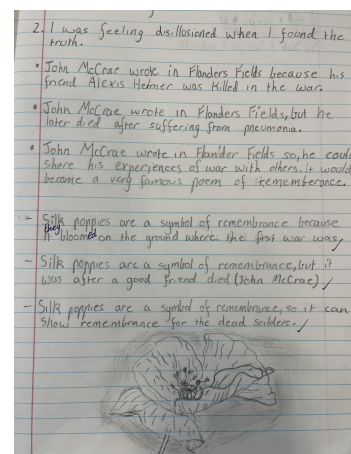 2. I was feeling disillusioned when I found the
truth.
• John McCrae wrote in Flanders Fields because his
friend Alexis Helmer was killed in the war.
• John McCrae wrote in Flanders Fields, but he
later died after suffering from pneumonia.
• John McCrae wrote in Flander Fields so, he could
share his experiences of war with others. it would
become a very famous poem of remembrance.
- Silk poppies are a symbol of remembrance because
they
it bloomed on the ground where the first war was
- Silk poppies are a symbol of remembrance, but it
was after a good friend died (John McCrae)
- Silk poppies are a symbol of remembrance, so it can
show remembrance for the dead soilders.